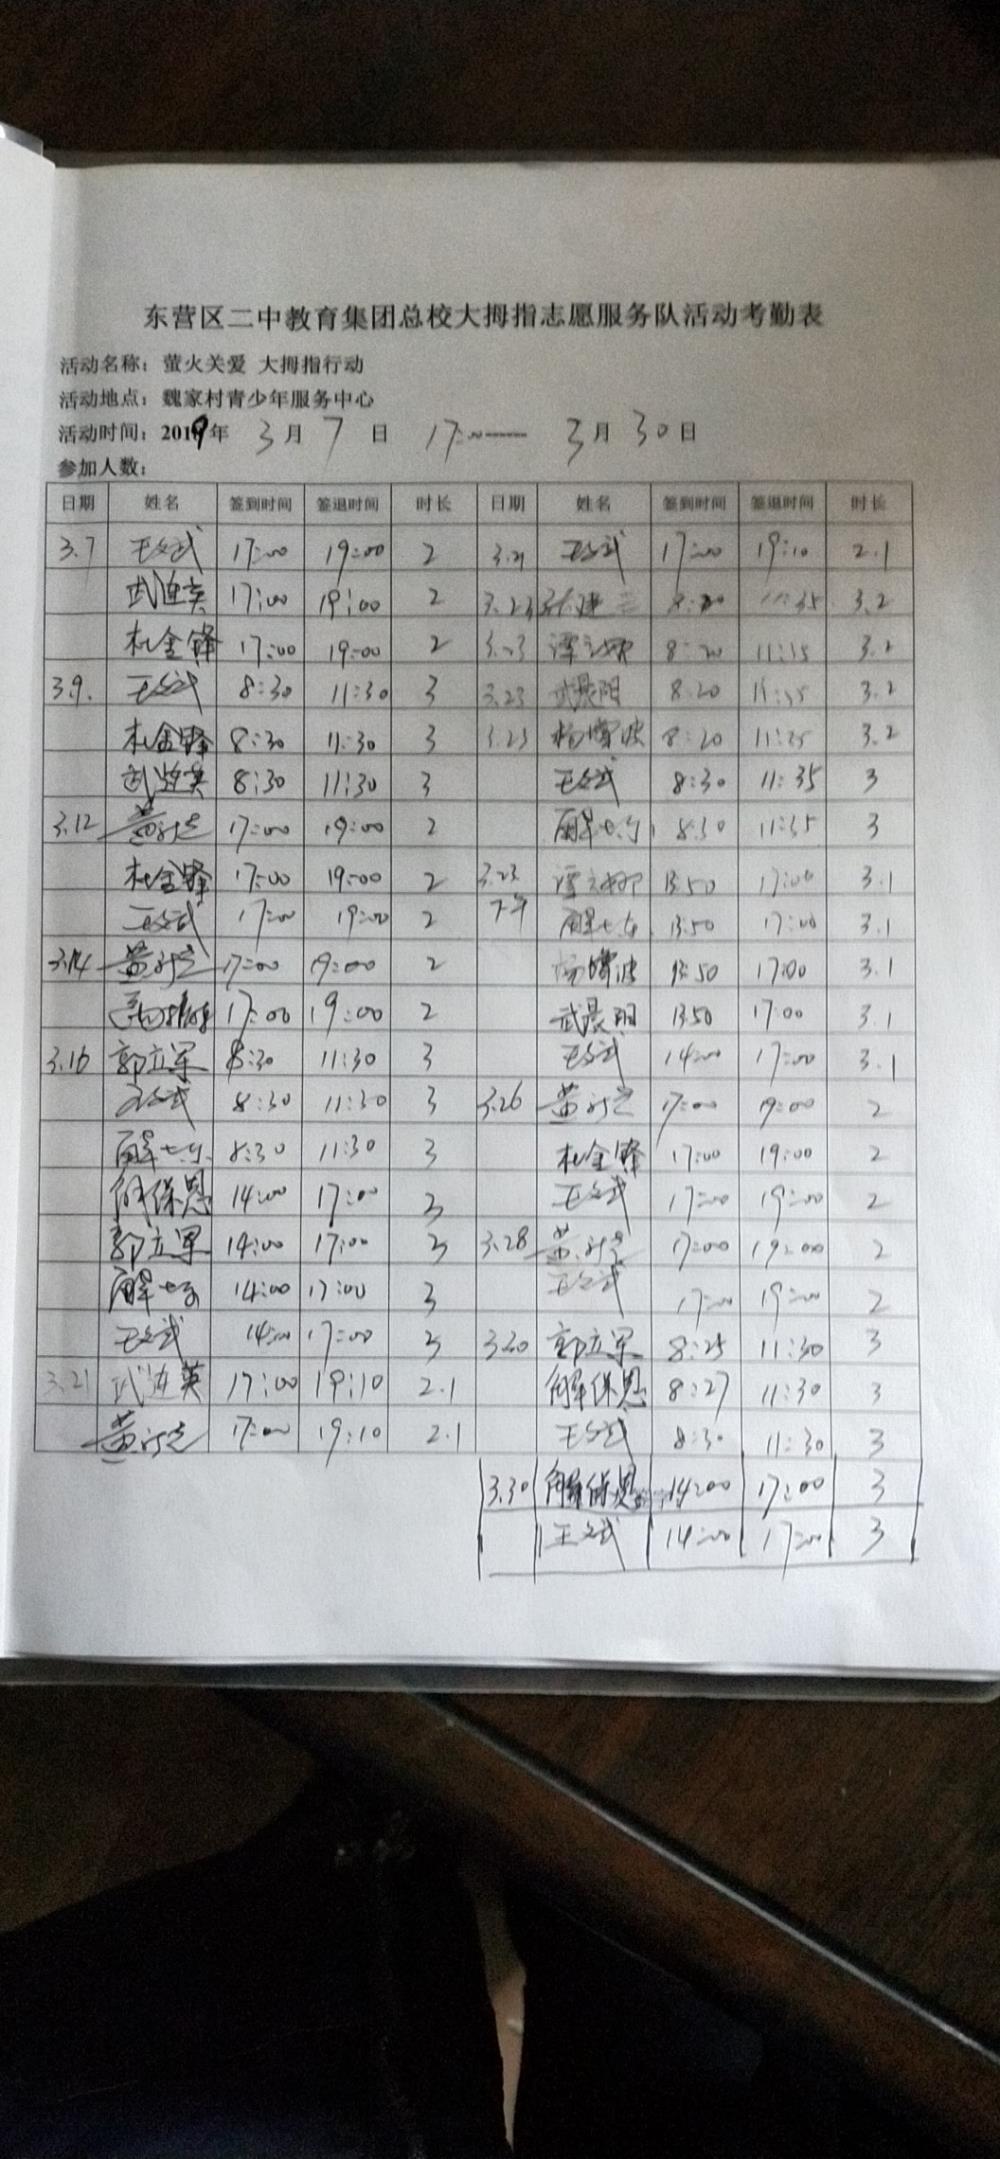 东营区二中教育集团总校大拇指志愿服务队活动考勤表
活动名称：萤火关爱 大拇指行动
活动地点：魏家村青少年服务中心
活动时间：2019年 3月 7日 17:00—— 3月30日
参加人数：
日期 姓名 签到时间 签退时间 时长 日期 姓名 签到时间 签退时间 时长
3.7 王文武 17:00 19:00 2 3.21 王文武 17:00 19:10 2.1
武连英 17:00 19:00 2 3.23 8:20 11:35 3.2
杜金锋 17:00 19:00 2 3.23 8:20 11:35 3.2
3.9. 王文武 8:30 11:30 3 3.23 武晨阳 8:20 11:35 3.2
杜金锋 8:30 11:30 3 3.23 8:20 11:35 3.2
武连英 8:30 11:30 3 王文武 8:30 11:35 3
3.12 17:00 19:00 2 8:30 11:35 3
杜金锋 17:00 19:00 2 3.23 13:50 17:00 3.1
王文武 17:00 19:00 2 下午 13:50 17:00 3.1
3.14 17:00 19:00 2 13:50 17:00 3.1
17:00 19:00 2 武晨阳 13:50 17:00 3.1
3.16 郭立军 8:30 11:30 3 王文武 14:00 17:00 3.1
王文武 8:30 11:30 3 3.26 17:00 19:00 2
8:30 11:30 3 杜金锋 17:00 19:00 2
解保恩 14:00 17:00 3 王文武 17:00 19:00 2
郭立军 14:00 17:00 3 3.28 17:00 19:00 2
14:00 17:00 3 王文武 17:00 19:00 2
王文武 14:00 17:00 3 3.30 郭立军 8:25 11:30 3
3.21 武连英 17:00 19:10 2.1 解保恩 8:27 11:30 3
17:00 19:10 2.1 王文武 8:30 11:30 3
3.30 解保恩 14:00 17:00 3
王文武 14:00 17:00 3